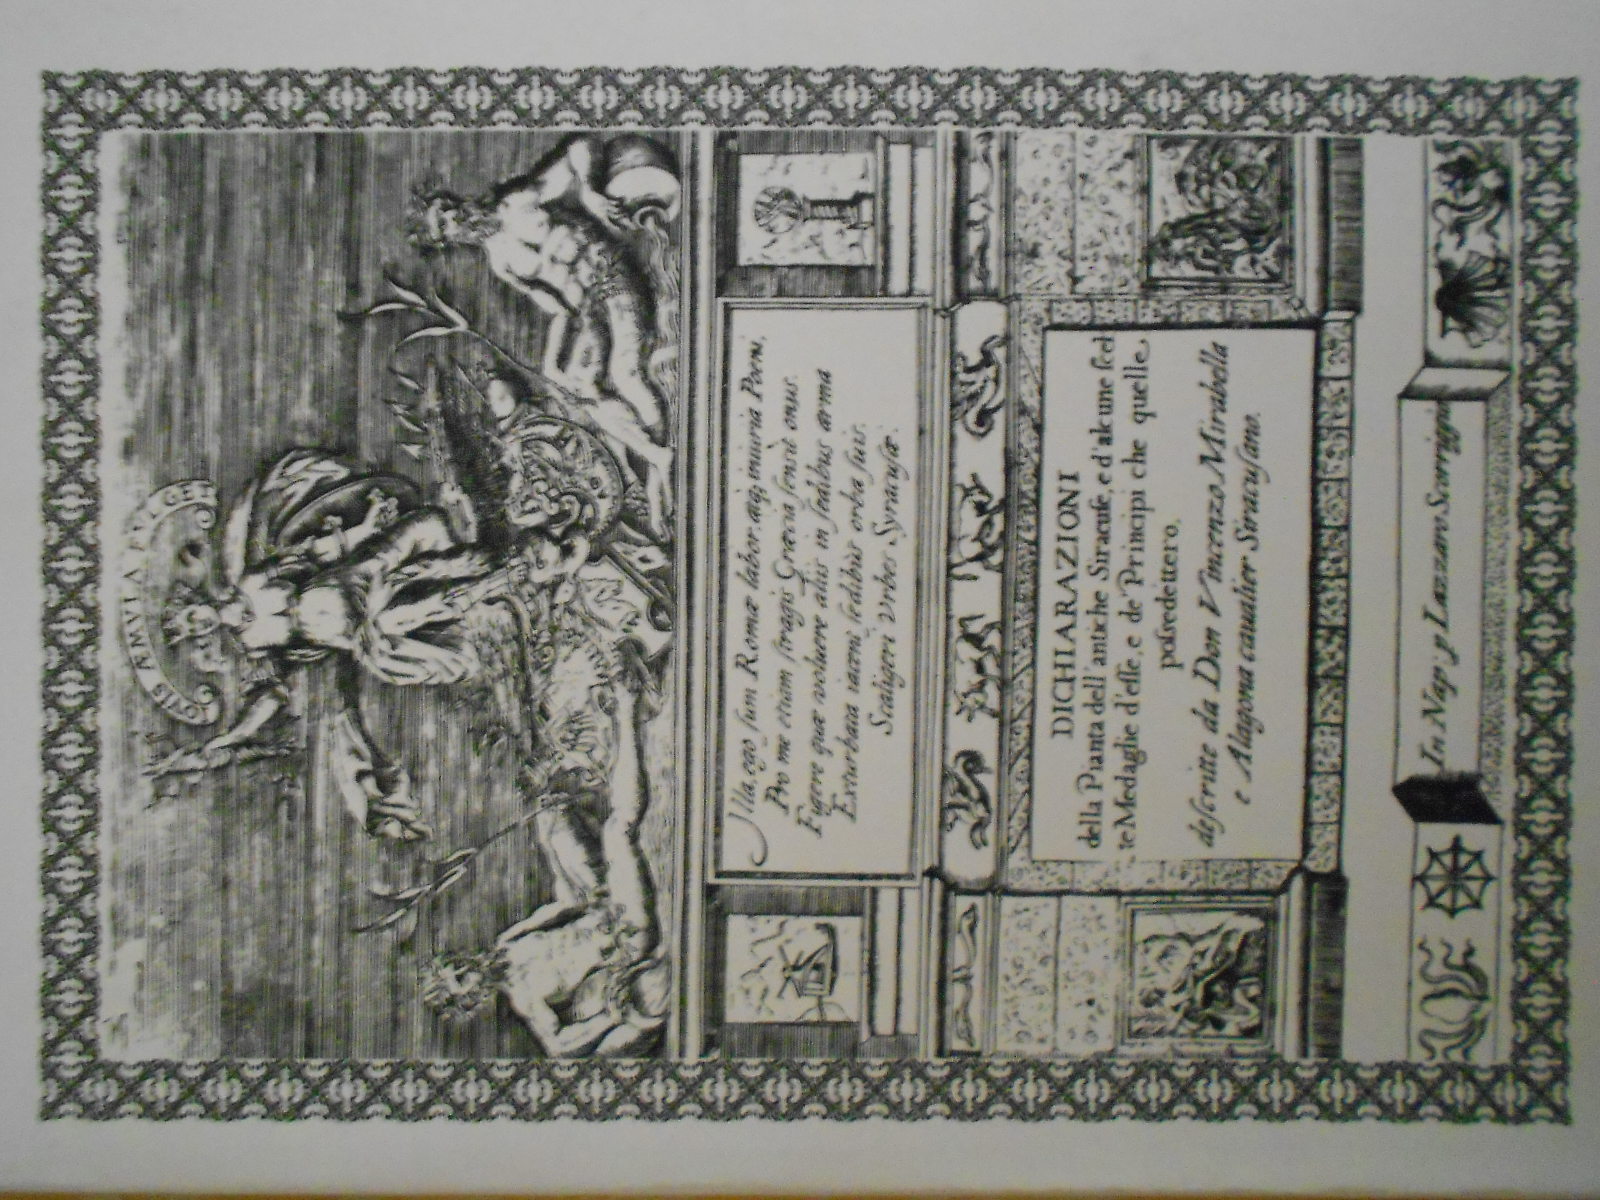 Illa ego sum Romæ labor, atq; iniuria Poeni,
Pro me etiam stragis Græcia sensit onus.
Figere quæ voluere aliis in sedibus arma
Exturbata iacent sedibus orba suis.
Scaligeri Vrbes Syracusæ.
DICHIARAZIONI
della Pianta dell'antiche Siracuse, e d'alcune scel
te Medaglie d'esse, e de' Principi che quelle
possedettero,
descritte da Don Vincenzo Mirabella
e Alagona caualier Siracusano.
In Nap: p Lazzaro Scorriggio